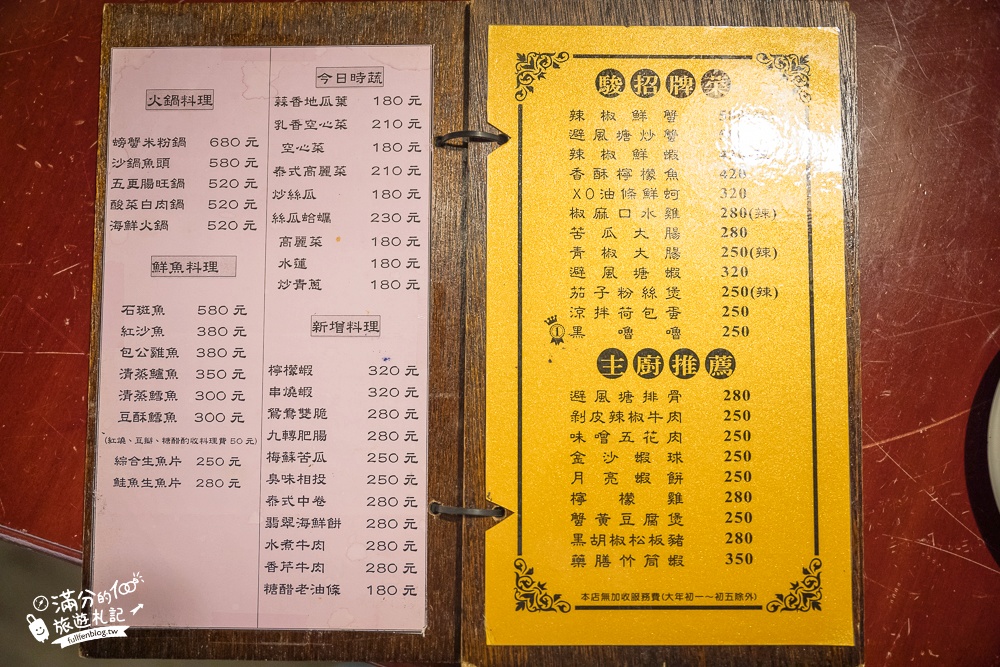 火鍋料理
螃蟹米粉鍋 680元
沙鍋魚頭 580元
五更腸旺鍋 520元
酸菜白肉鍋 520元
海鮮火鍋 520元
鮮魚料理
石斑魚 580元
紅沙魚 380元
包公雞魚 380元
清蒸鱸魚 350元
清蒸鱈魚 300元
豆酥鱈魚 300元
(紅燒、豆瓣、糖醋酌收料理費50元)
綜合生魚片 250元
鮭魚生魚片 280元
今日時蔬
蒜香地瓜葉 180元
乳香空心菜 210元
空心菜 180元
泰式高麗菜 210元
炒絲瓜 180元
絲瓜蛤蠣 230元
高麗菜 180元
水蓮 180元
炒青蔥 180元
新增料理
檸檬蝦 320元
串燒蝦 320元
鴛鴦雙脆 280元
九轉肥腸 280元
梅蘇苦瓜 250元
臭味相投 250元
泰式中卷 280元
翡翠海鮮餅 280元
水煮牛肉 280元
香芹牛肉 280元
糖醋老油條 180元
駿招牌菜
辣椒鮮蟹
避風塘炒蟹
辣椒鮮蝦
香酥檸檬魚 420
XO油條鮮蚵 320
椒麻口水雞 280(辣)
苦瓜大腸 280
青椒大腸 250(辣)
避風塘蝦 320
茄子粉絲煲 250(辣)
涼拌荷包蛋 250
1 黑嚕嚕 250
主廚推薦
避風塘排骨 280
剝皮辣椒牛肉 250
味噌五花肉 250
金沙蝦球 250
月亮蝦餅 250
檸檬雞 280
蟹黃豆腐煲 250
黑胡椒松板豬 280
藥膳竹筒蝦 350
本店無加收服務費(大年初一～初五除外)
滿分的
旅遊札記
fullfenblog.tw